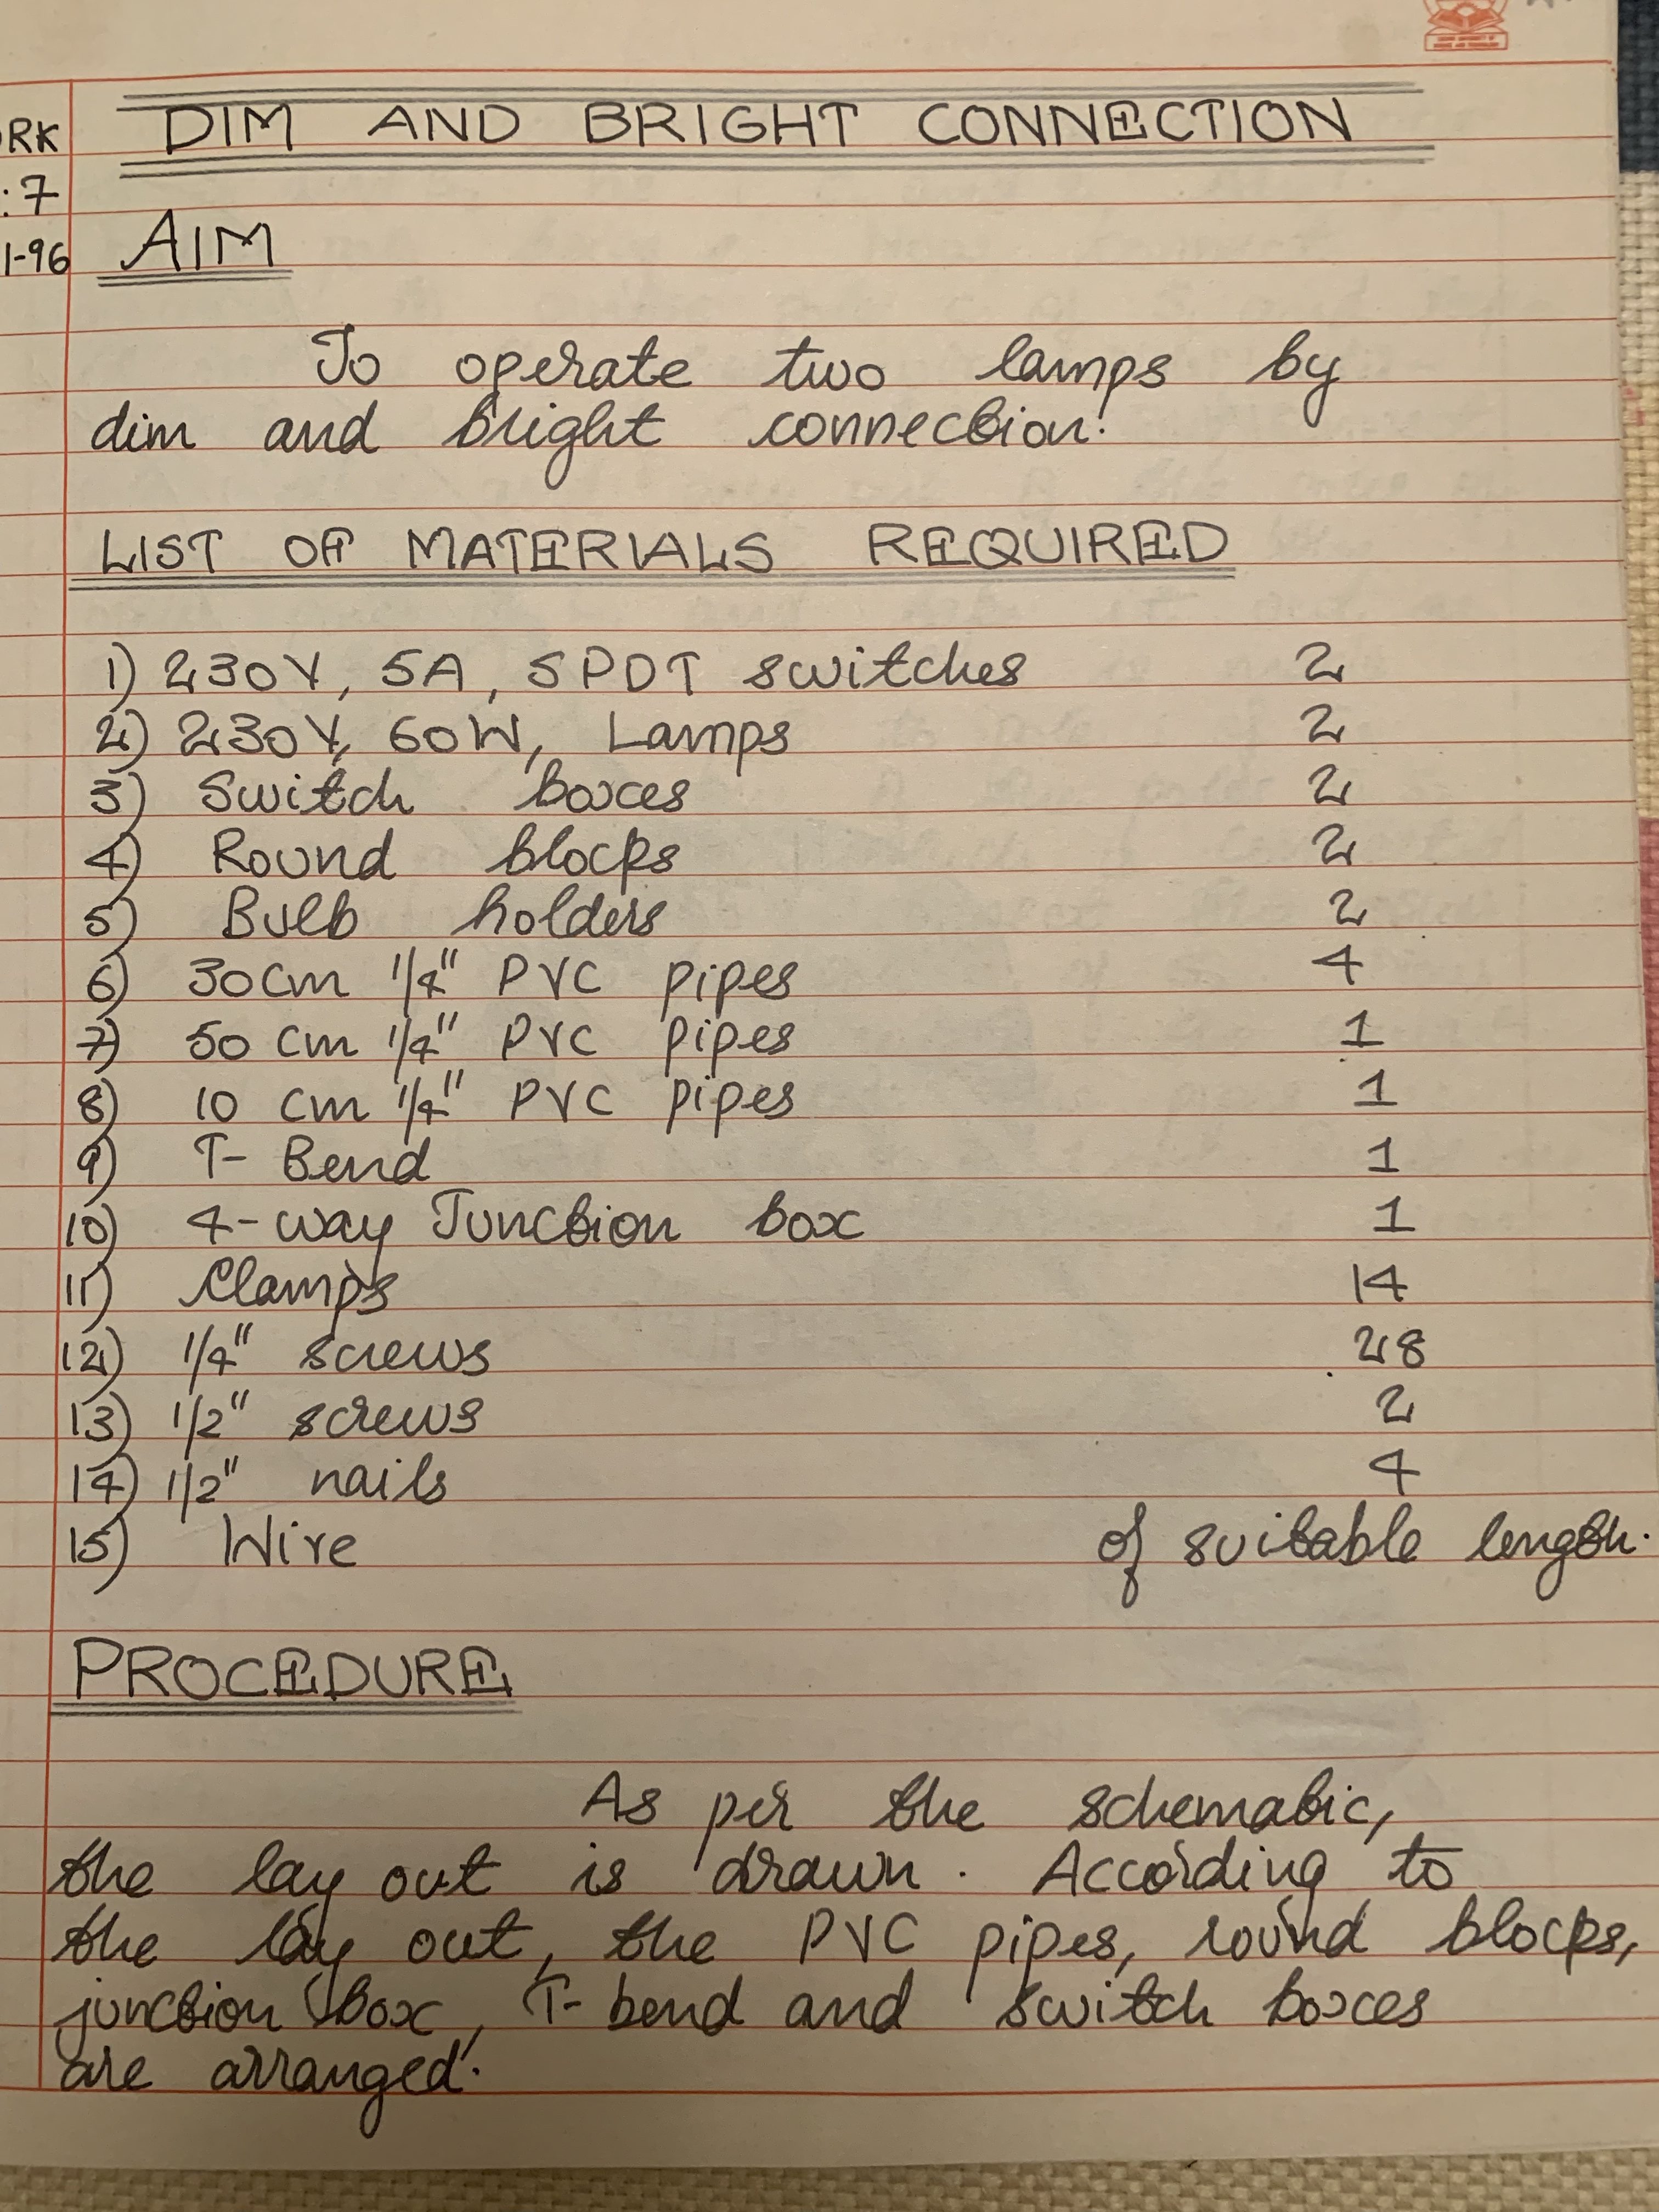 DIM AND BRIGHT CONNECTION
RK
:7
1-96
AIM
To operate two lamps by
dim and bright connection.
LIST OF MATERIALS REQUIRED
1) 230V, 5A, SPDT switches 2
2) 230V, 60W, Lamps 2
3) Switch boxes 2
4) Round blocks 2
5) Bulb holders 2
6) 30cm 1/4" PVC pipes 4
7) 50 cm 1/4" PVC pipes 1
8) 10 cm 1/4" PVC pipes 1
9) T- Bend 1
10) 4-way Junction box 1
11) Clamps 14
12) 1/4" screws 28
13) 1/2" screws 2
14) 1/2" nails 4
15) Wire of suitable length.
PROCEDURE
As per the schematic,
the lay out is drawn. According to
the lay out, the PVC pipes, round blocks,
junction box, T-bend and switch boxes
are arranged.